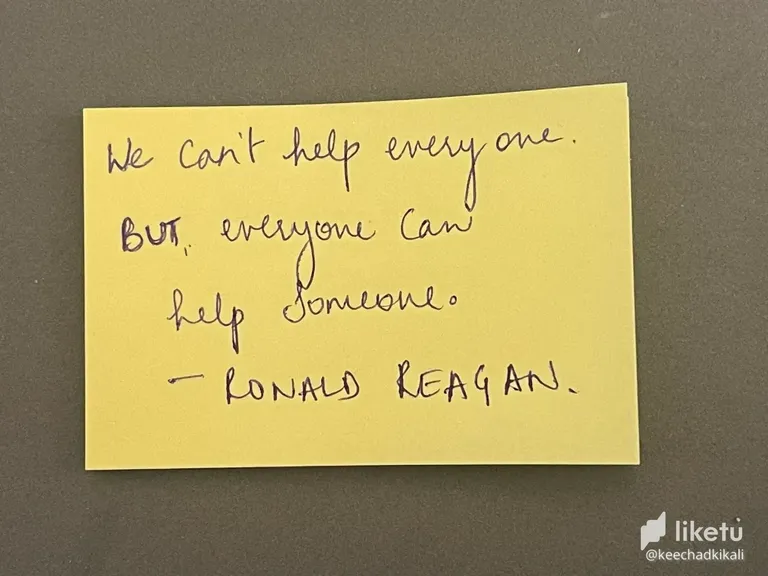 We can't help everyone.
BUT, everyone can
help someone.
- RONALD REAGAN.
liketu
@keechadkikali